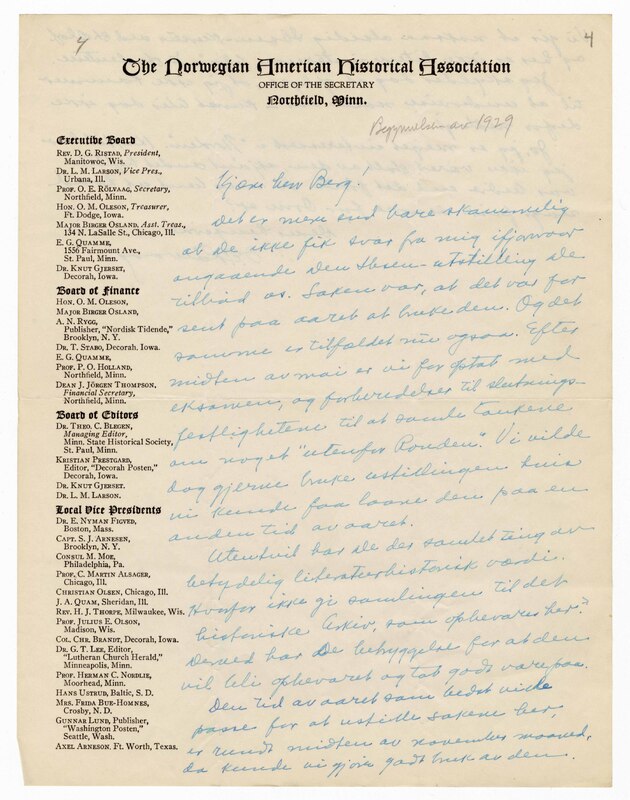 4
4
The Norwegian American Historical Association
OFFICE OF THE SECRETARY
Northfield, Minn.
Begynnelsen av 1929
Executive Board
REV. D. G. RISTAD, President,
Manitowoc, Wis.
DR. L. M. LARSON, Vice Pres.,
Urbana, Ill.
PROF. O. E. RÖLVAAG, Secretary,
Northfield, Minn.
HON. O. M. OLESON, Treasurer,
Ft. Dodge, Iowa.
MAJOR BIRGER OSLAND, Asst. Treas.,
134 N. LaSalle St., Chicago, Ill.
E. G. QUAMME,
1556 Fairmount Ave.,
St. Paul, Minn.
DR. KNUT GJERSET,
Decorah, Iowa.
Board of Finance
HON. O. M. OLESON,
MAJOR BIRGER OSLAND,
A. N. RYGG,
Publisher, "Nordisk Tidende,"
Brooklyn, N. Y.
DR. T. STABO, Decorah, Iowa.
E. G. QUAMME,
PROF. P. O. HOLLAND,
Northfield, Minn.
DEAN J. JÖRGEN THOMPSON,
Financial Secretary,
Northfield, Minn.
Board of Editors
DR. THEO. C. BLEGEN,
Managing Editor,
Minn. State Historical Society,
St. Paul, Minn.
KRISTIAN PRESTGARD,
Editor, "Decorah Posten,"
Decorah, Iowa.
DR. KNUT GJERSET.
DR. L. M. LARSON.
Local Vice Presidents
DR. E. NYMAN FIGVED,
Boston, Mass.
CAPT. S. J. ARNESEN,
Brooklyn, N. Y.
CONSUL M. MOE,
Philadelphia, Pa.
PROF. C. MARTIN ALSAGER,
Chicago, Ill.
CHRISTIAN OLSEN, Chicago, Ill.
J. A. QUAM, Sheridan, Ill.
REV. H. J. THORPE, Milwaukee, Wis.
PROF. JULIUS E. OLSON,
Madison, Wis.
COL. CHR. BRANDT, Decorah, Iowa.
DR. G. T. LEE, Editor,
"Lutheran Church Herald,"
Minneapolis, Minn.
PROF. HERMAN C. NORDLIE,
Moorhead, Minn.
HANS USTRUD, Baltic, S. D.
MRS. FRIDA BUE-HOMNES,
Crosby, N. D.
GUNNAR LUND, Publisher,
"Washington Posten,"
Seattle, Wash.
AXEL ARNESON, Ft. Worth, Texas.
Kjære herr Berg!
Det er mere end bare skammelig
at De ikke fik svar fra mig ifjorvaar
angaaende den Ibsen-utstilling De
tilbød os. Saken var, at det var for
sent paa aaret at bruke den. Og det
samme er tilfældet nu ogsaa. Efter
midten av mai er vi for optat med
eksamen, og forberedelser til slutnings-
festlighetene til at samle tankene
om noget "utenfor Ronden". Vi vilde
dog gjerne bruke utstillingen hvis
vi kunde faa laane den paa en
anden tid av aaret.
Utentvil har De der samlet ting av
betydelig literærhistorisk værdi.
Hvorfor ikke gi samlingen til det
historiske Arkiv, som opbevares her?
Derved har De betryggelse for at den
vil bli opbevaret og tat godt vare paa.
Den tid av aaret som bedst vilde
passe for at utstille sakene her,
er rundt midten av november maaned,
da kunde vi gjøre godt bruk av den.